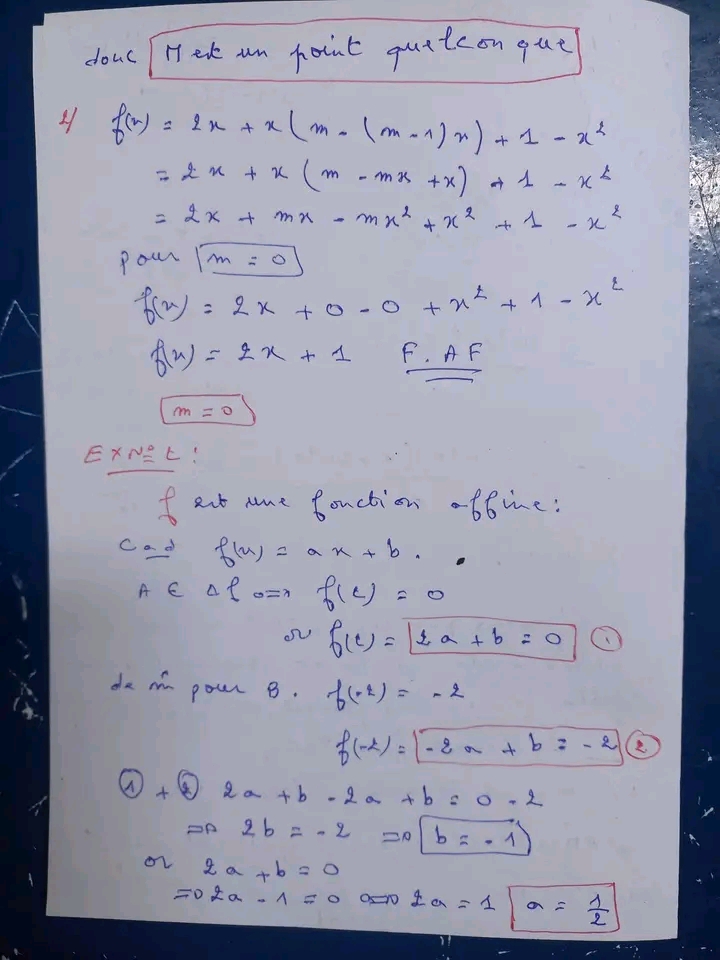 donc M est un point quelconque
2/ f(x) = 2x + x(m - (m-1)x) + 1 - x²
= 2x + x(m - mx + x) + 1 - x²
= 2x + mx - mx² + x² + 1 - x²
pour m = 0
f(x) = 2x + 0 - 0 + x² + 1 - x²
f(x) = 2x + 1 F.AF
m = 0
EXN° 2 :
f est une fonction affine :
Cad f(x) = ax + b.
A ∈ Δf ⟺ f(2) = 0
or f(2) = 2a + b = 0 ①
de m̂ pour B. f(-2) = -2
f(-2) = -2a + b = -2 ②
① + ② 2a + b - 2a + b = 0 - 2
⟹ 2b = -2 ⟹ b = -1
or 2a + b = 0
⟹ 2a - 1 = 0 ⟺ 2a = 1 a = 1/2